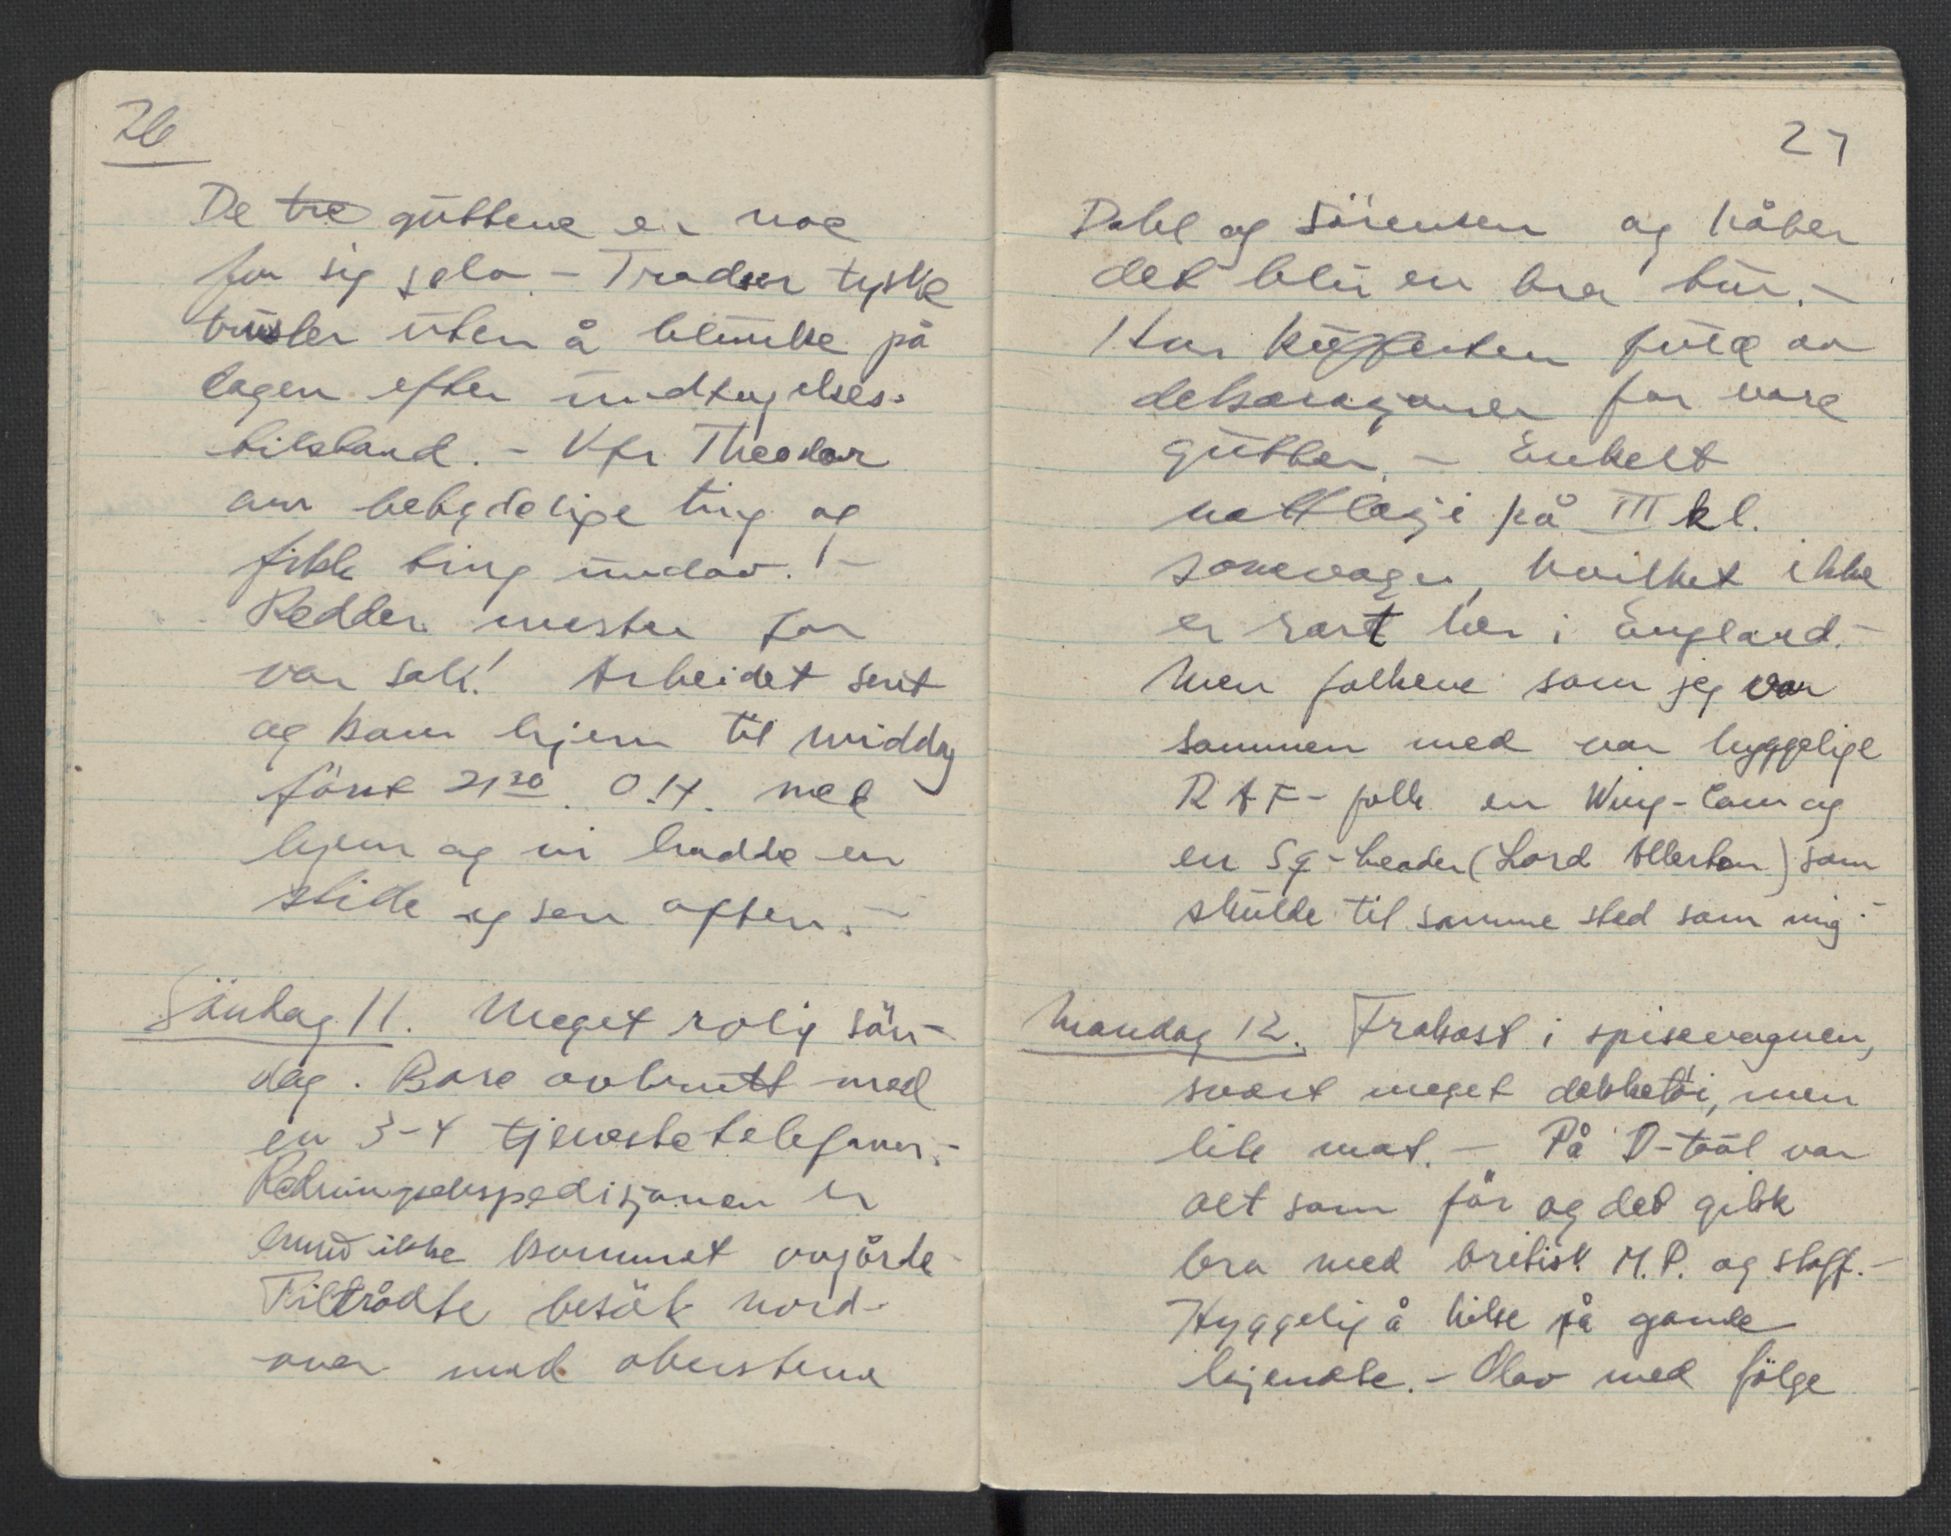 26
De tre guttene er noe
for sig selv. – Trodser tyske
trusler uten å blunke på
dagen efter unntagelses-
tilstand. – Kfr. Theodor
om betydelige ting og
fikk ting undav! –
Redder mester for
vår sak! Arbeidet sent
og kom hjem til middag
först 21³⁰. O.H. med
hjem og vi hadde en
stille og sen aften. –
Söndag 11. Meget rolig sön-
dag. Bare avbrutt med
en 3-4 tjenestetelefoner. –
Redningsekspedisjonen er
ennu ikke kommet avgårde
Tiltrådte besök nord-
over med oberstene
27
Dahl og Sörensen og håber
det blir en bra tur. –
Har kofferten full av
dekorasjoner for våre
gutter. – Enkelt
nattlosji på III kl.
sovevogn, hvilket ikke
er rart her i England. –
Men folkene som jeg var
sammen med var hyggelige
RAF-folk en Wing-Com og
en Sq-Leader (Lord Allerton) som
skulde til samme sted som mig. –
Mandag 12. Frokost i spisevognen,
svært meget dekketöi, men
lite mat. – På D-toal var
alt som för og det gikk
bra med britisk M.P. og staff. –
Hyggelig å hilse på gamle
kjendte. – Olav med fölge